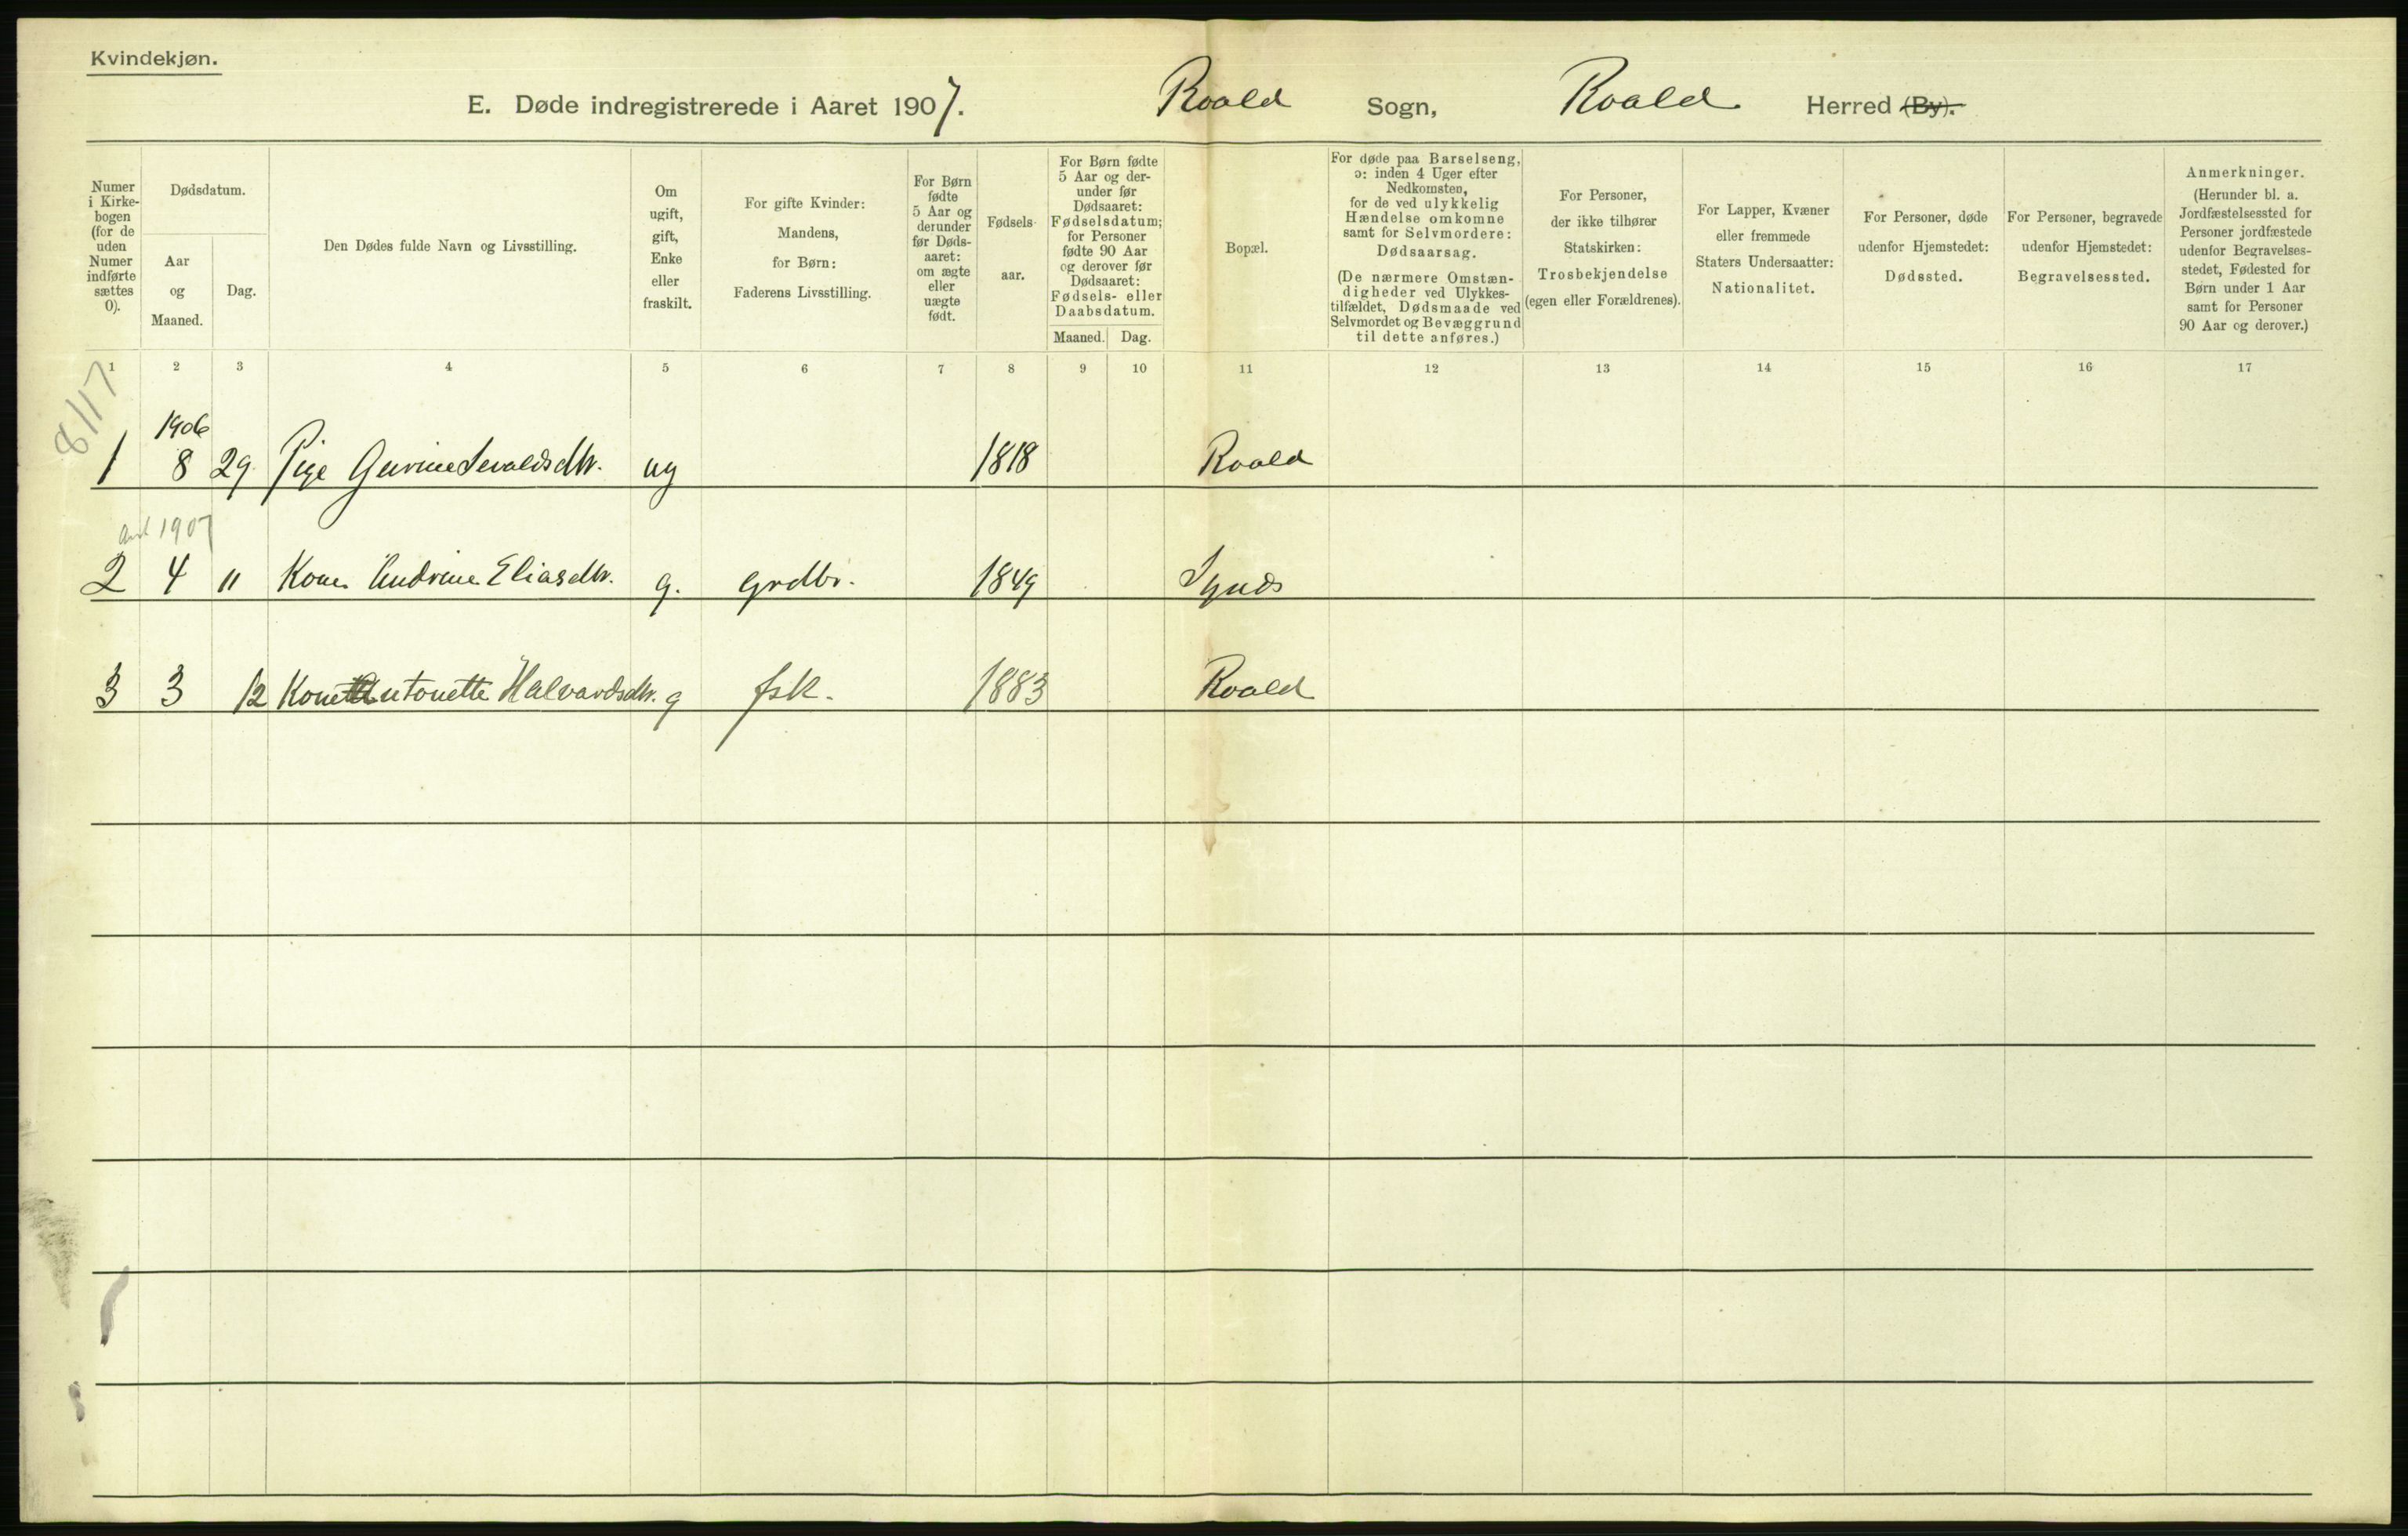 Kvindekjøn.
E. Døde indregistrerede i Aaret 1907. Roald Sogn, Roald Herred (By).
Numer i Kirkebogen (for de uden Numer indførte sættes 0).
Dødsdatum.
Aar og Maaned.
Dag.
Den Dødes fulde Navn og Livsstilling.
Om ugift, gift, Enke eller fraskilt.
For gifte Kvinder: Mandens, for Børn: Faderens Livsstilling.
For Børn fødte 5 Aar og derunder før Dødsaaret: om ægte eller uægte født.
Fødsels-aar.
For Børn fødte 5 Aar og derunder før Dødsaaret: Fødselsdatum; for Personer fødte 90 Aar og derover før Dødsaaret: Fødsels- eller Daabsdatum.
Maaned. Dag.
Bopæl.
For døde paa Barselseng, ɔ: inden 4 Uger efter Nedkomsten, for de ved ulykkelig Hændelse omkomne samt for Selvmordere: Dødsaarsag.
(De nærmere Omstændigheder ved Ulykkestilfældet, Dødsmaade ved Selvmordet og Bevæggrund til dette anføres.)
For Personer, der ikke tilhører Statskirken: Trosbekjendelse (egen eller Forældrenes).
For Lapper, Kvæner eller fremmede Staters Undersaatter: Nationalitet.
For Personer, døde udenfor Hjemstedet: Dødssted.
For Personer, begravede udenfor Hjemstedet: Begravelsessted.
Anmerkninger.
(Herunder bl. a. Jordfæstelsessted for Personer jordfæstede udenfor Begravelsesstedet, Fødested for Børn under 1 Aar samt for Personer 90 Aar og derover.)
1 2 3 4 5 6 7 8 9 10 11 12 13 14 15 16 17
8117
1906
1 8 29 Pige Gurine Sevaldsdtr. ug 1818 Roald
1907
2 4 11 Kone Andrine Eliasdtr. g. grdbr. 1849 Synes
3 3 12 Kone Antonette Halvardsdtr. g fsk. 1883 Roald